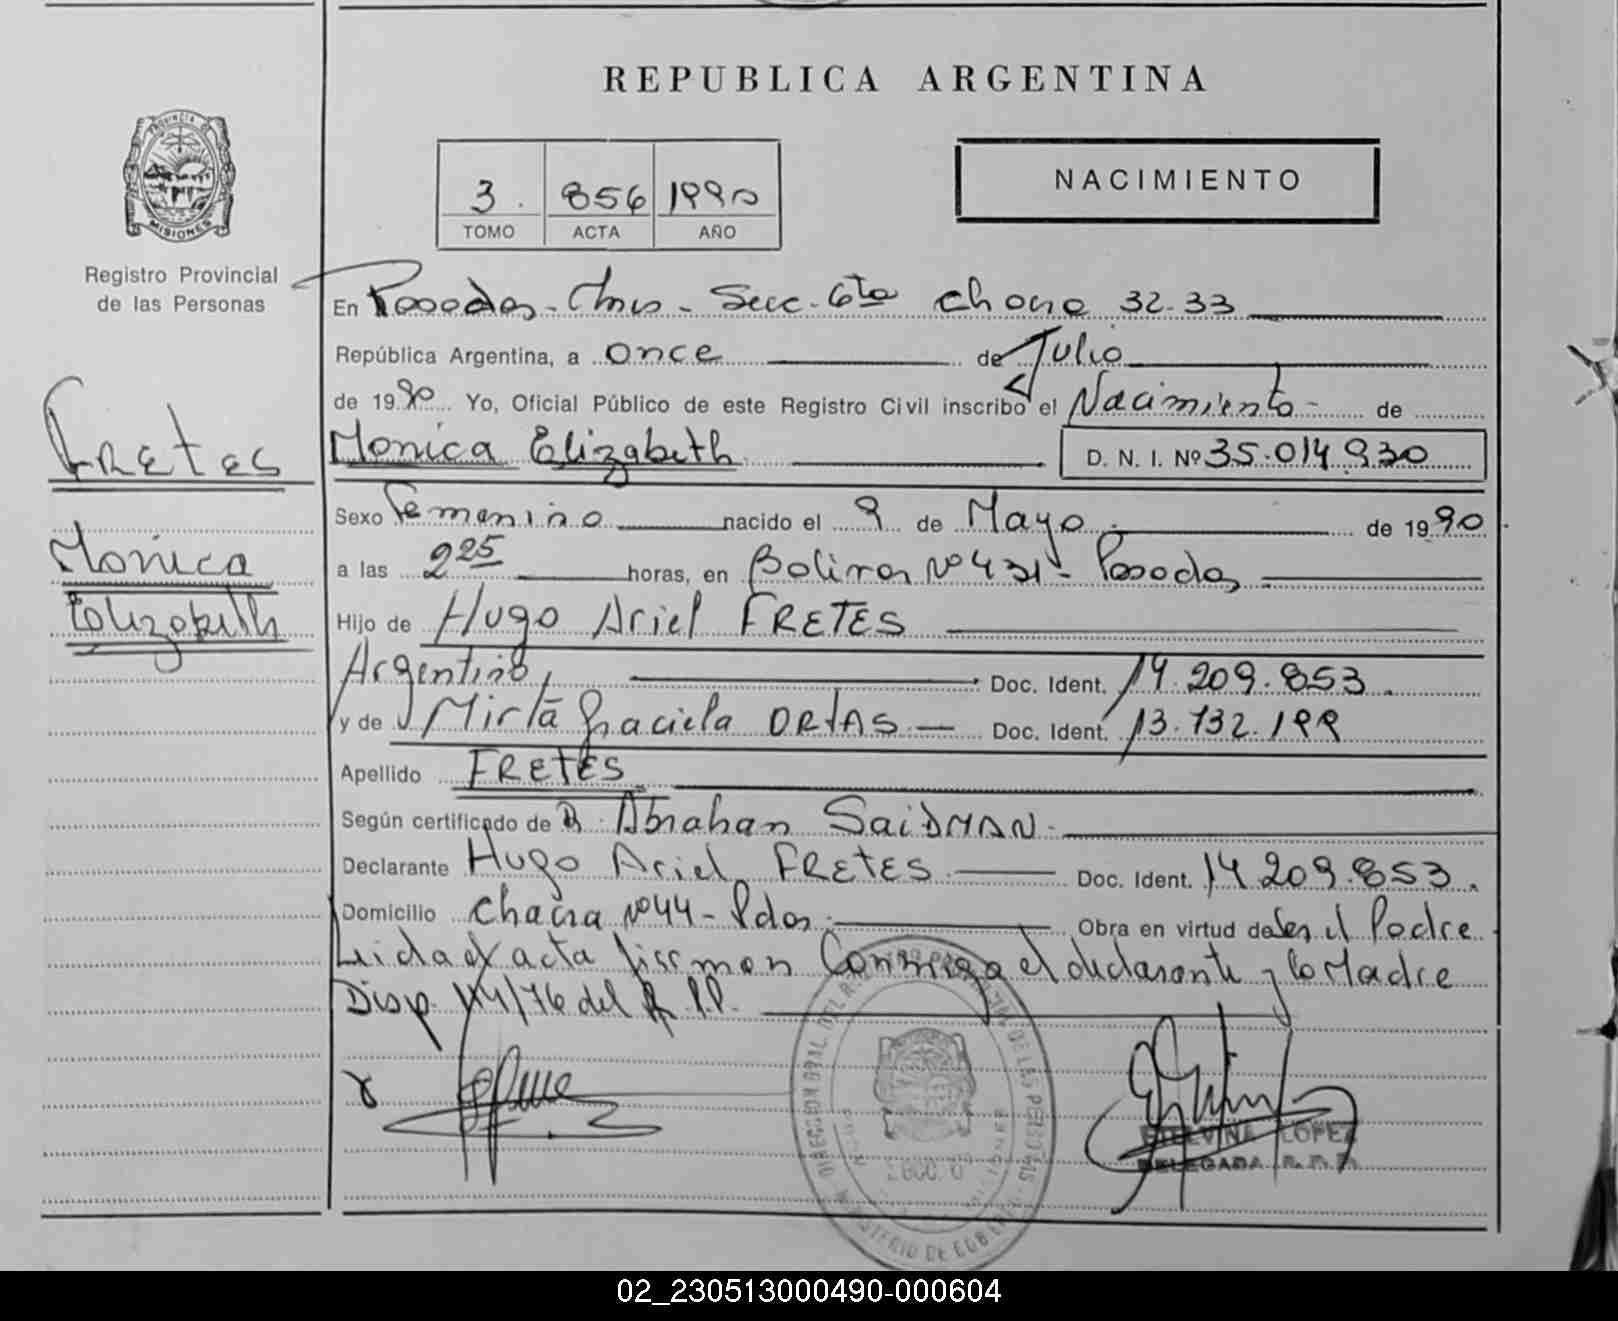 REPUBLICA ARGENTINA
PROVINCIA DE
MISIONES
Registro Provincial
de las Personas
3. 856 1990
TOMO ACTA AÑO
NACIMIENTO
En Posadas - Mnes - Secc. 6ta Chacra 32-33
República Argentina, a once de Julio
de 1990 Yo, Oficial Público de este Registro Civil inscribo el Nacimiento de
Monica Elizabeth D. N. I. Nº 35.014.930
FRETES
Monica
Elizabeth
Sexo Femenino nacido el 9 de Mayo de 1990
a las 2 25 horas, en Bolivar Nº 431 - Posadas
Hijo de Hugo Ariel FRETES
Argentino, Doc. Ident. 14.209.853.
y de Mirta Graciela ORIAS Doc. Ident. 13.732.199
Apellido FRETES
Según certificado de Abrahan SaiDMAN.
Declarante Hugo Ariel FRETES Doc. Ident. 14.209.853.
Domicilio Chacra Nº 44 - Pdas. Obra en virtud de Ser el Padre
Leida el acta firman Conmigo el declarante y la Madre
Disp. 114/76 del R.P.P.
ETELVINA LOPEZ
DELEGADA R.P.P.
MINISTERIO DE GOBIERNO
02_230513000490-000604